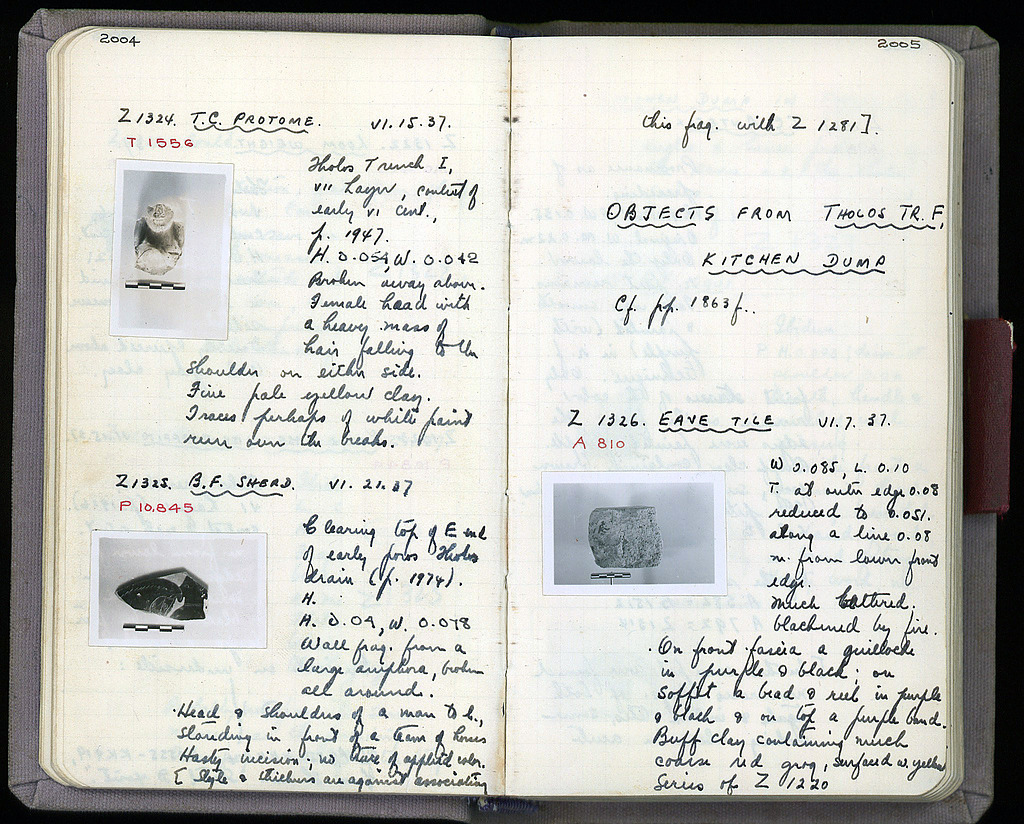 2004
Z 1324. T.C. PROTOME. VI.15.37.
T 1556
Tholos Trench I,
VII Layer, context of
early VI cent.,
p. 1947.
H. 0.054, W. 0.042
Broken away above.
Female head with
a heavy mass of
hair falling to the
shoulder on either side.
Fine pale yellow clay.
Traces perhaps of white paint
run over the breaks.
Z 1325. B.F. SHERD. VI.21.37
P 10,845
Clearing top of E end
of early poros Tholos
drain (p. 1974).
H.
H. 0.04, W. 0.078
Wall frag. from a
large amphora, broken
all around.
Head & shoulders of a man to l.,
standing in front of a team of horses
Hasty incision; no trace of applied color.
[Style & thickness are against associating
2005
this frag. with Z 1281].
OBJECTS FROM THOLOS TR. F,
KITCHEN DUMP
Cf. pp. 1863f..
Z 1326. EAVE TILE VI.7.37.
A 810
W 0.085, L. 0.10
T. at outer edge 0.08
reduced to 0.051.
along a line 0.08
m. from lower front
edge.
Much battered.
blackened by fire.
On front fascia a guilloche
in purple & black; on
soffit a bead & reel in purple
& black & on top a purple band.
Buff clay containing much
coarse red grog, surfaced w. yellow
Series of Z 1220